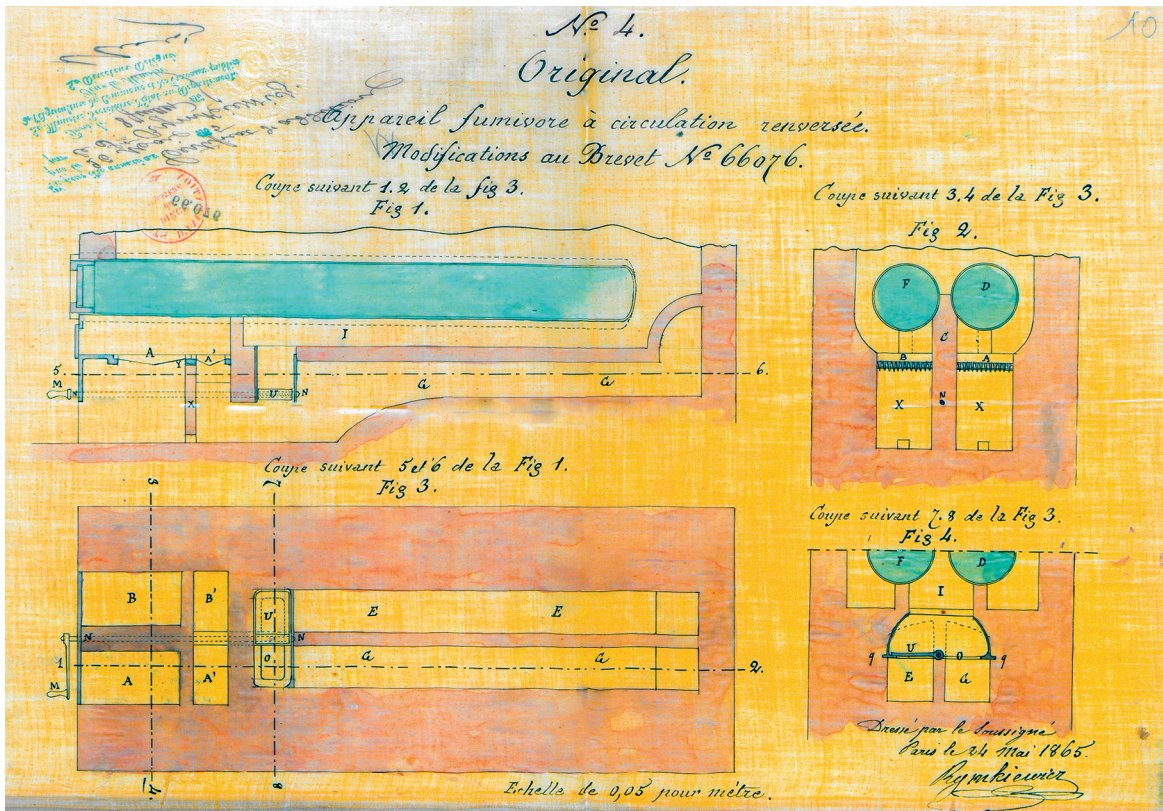 10
Nº 4.
Original.
Appareil fumivore à circulation renversée.
Modifications au Brevet Nº 66076.
Coupe suivant 1.2 de la fig 3.
Fig 1.
Coupe suivant 3.4 de la Fig 3.
Fig 2.
A
A'
Y
I
5
6.
M
N
U
N
G
G
X
F
D
C
B
A
N
X
X
Coupe suivant 5 et 6 de la Fig 1.
Fig 3.
3
7
B
B'
U'
E
E
N
N
1
O
G
G
2.
M
A
A'
4.
8
Coupe suivant 7.8 de la Fig 3.
Fig 4.
F
D
I
9
U
O
9
E
G
Dressé par le Soussigné
Paris le 24 Mai 1865.
Rymkiewicz
Echelle de 0,05 pour mètre.